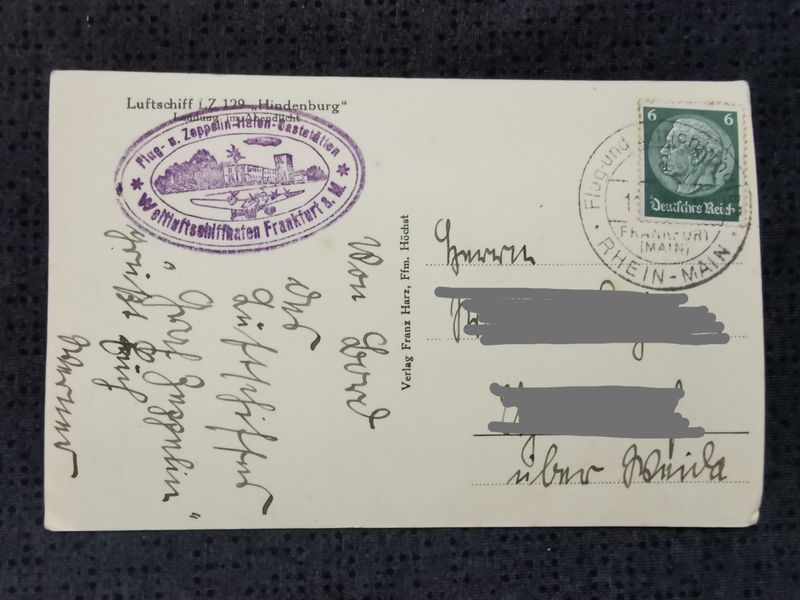 Luftschiff LZ 129 „Hindenburg"
Landung im Abendlicht
Flug- u. Zeppelin-Hafen-Gaststätten
Weltluftschiffhafen Frankfurt a. M.
Von Bord
des
Luftschiffes
„Graf Zeppelin"
grüßt Euch
Verlag Franz Harz, Ffm. Höchst
6 6
Deutsches Reich
Flug und
11
FRANKFURT
(MAIN)
RHEIN-MAIN
Herrn
über Weida